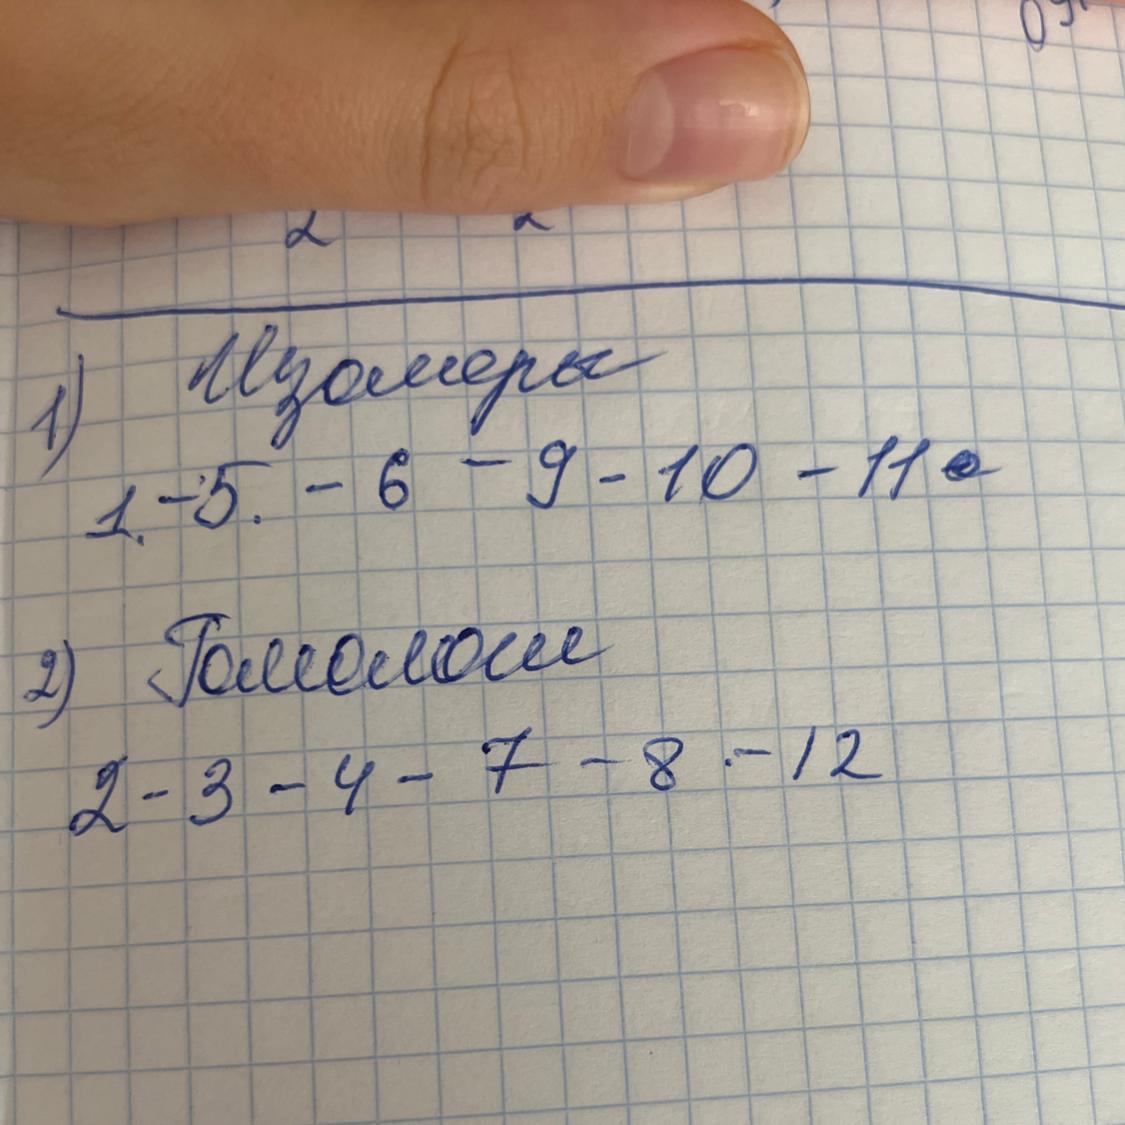 2 2
1) Изомеры
1. - 5. - 6 - 9 - 10 - 11
2) Гомологи
2 - 3 - 4 - 7 - 8 - 12